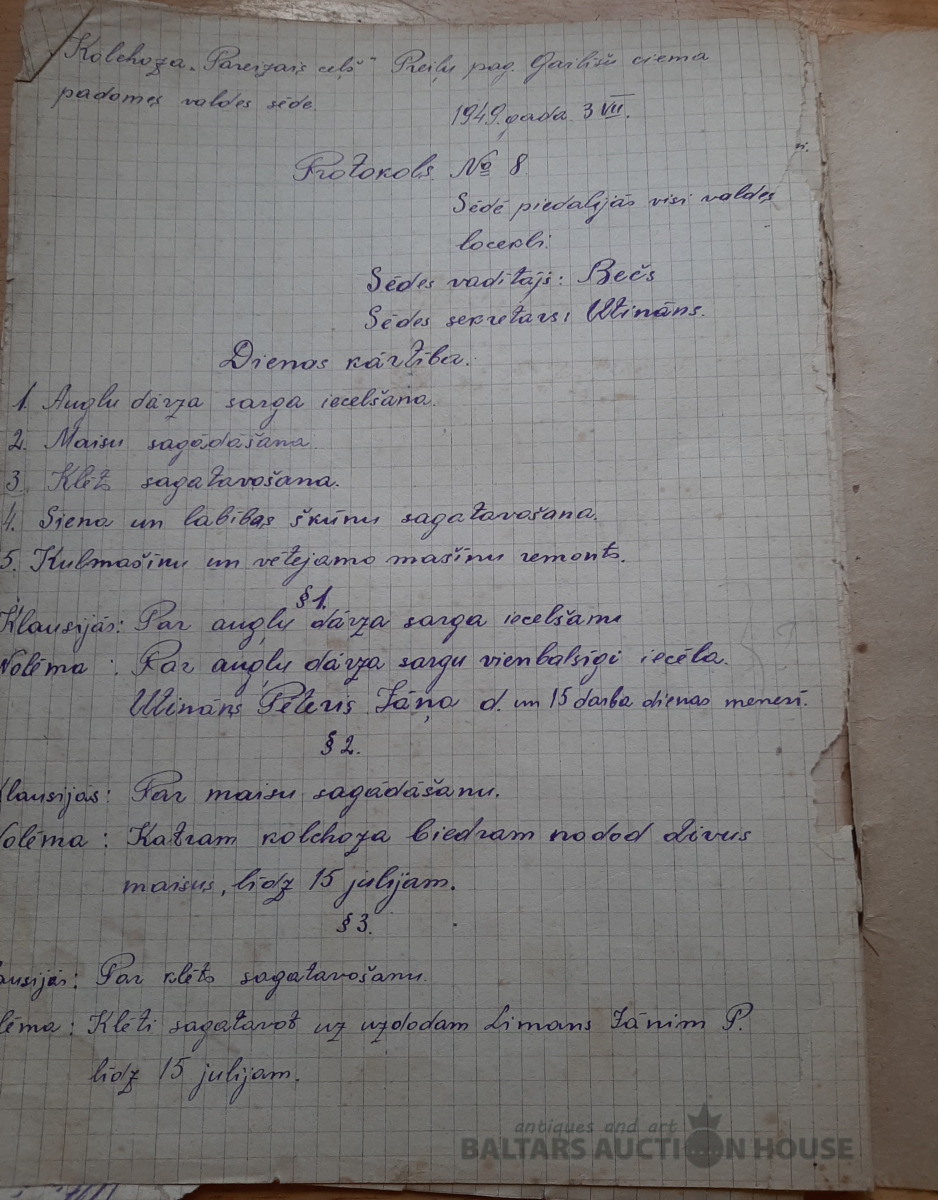 Kolchoza „Pareizais ceļš" Preiļu pag. Gailīšu ciema
padomes valdes sēde.
1949. gada 3 VII.
Protokols № 8
Sēdē piedalījās visi valdes
locekļi.
Sēdes vadītājs: Bečs
Sēdes sekretārs: Utināns.
Dienas kārtība.
1. Augļu dārza sarga iecelšana.
2. Maisu sagādāšana.
3. Klēts sagatavošana.
4. Siena un labības šķūņu sagatavošana.
5. Kulmašīnu un vētejamo mašīnu remonts.
§ 1.
Klausījās: Par augļu dārza sarga iecelšanu
Nolēma : Par augļu dārza sargu vienbalsīgi iecēla.
Utināns Pēteris Jāņa d. un 15 darba dienas menesī.
§ 2.
Klausijas: Par maisu sagādāšanu.
Nolēma : Katram kolchoza biedram nodod divus
maisus, līdz 15 julijam.
§ 3.
ausījās: Par klēts sagatavošanu.
lēma : Klēti sagatavot uz uzdodam Limans Jānim P.
līdz 15 julijam.
antiques and art
BALTARS AUCTION HOUSE